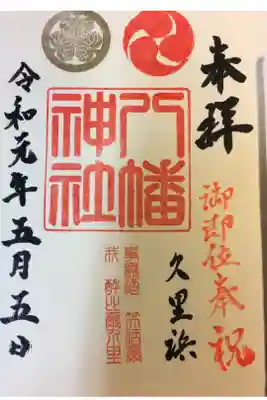 奉拝
御即位奉祝
久里浜
八幡
神社
令和元年五月五日